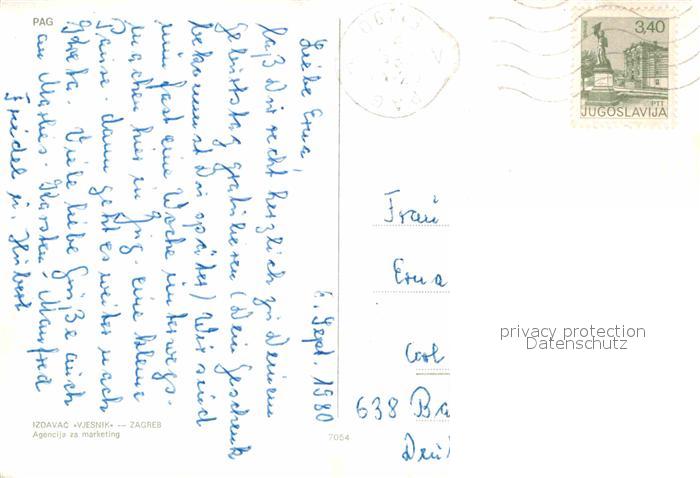 PAG
6. Sept. 1980
Liebe Erna!
laß Dir recht herzlich zu Deinem
Geburtstag gratulieren (Dein Geschenk
bekommst Du später) Wir sind
nun fast eine Woche unterwegs.
machen hier in Jug. eine kleine
Pause. dann geht es weiter nach
Viele liebe Grüße auch
an Marlies. Karsten. Manfred
Friedel u. Hubert
IZDAVAČ «VJESNIK» — ZAGREB
Agencija za marketing
7054
3,40
PTT
JUGOSLAVIJA
PAG
Frau
Erna
638 Ba
privacy protection
Datenschutz